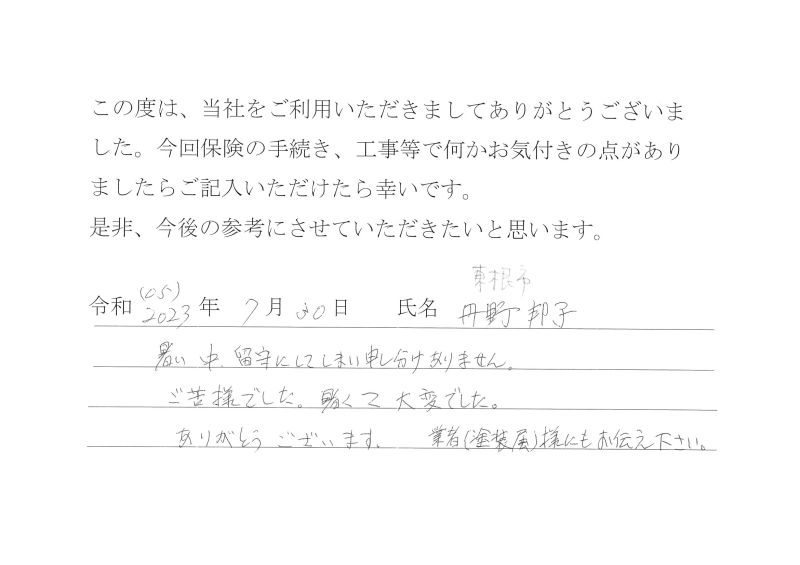 この度は、当社をご利用いただきましてありがとうございま
した。今回保険の手続き、工事等で何かお気付きの点があり
ましたらご記入いただけたら幸いです。
是非、今後の参考にさせていただきたいと思います。
東根市
(05)
令和 2023 年 7 月 30 日 氏名 丹野 邦子
暑い中、留守にしてしまい申し分けありません。
ご苦様でした。暑くて大変でした。
ありがとうございます。 業者(塗装屋)様にもお伝え下さい。